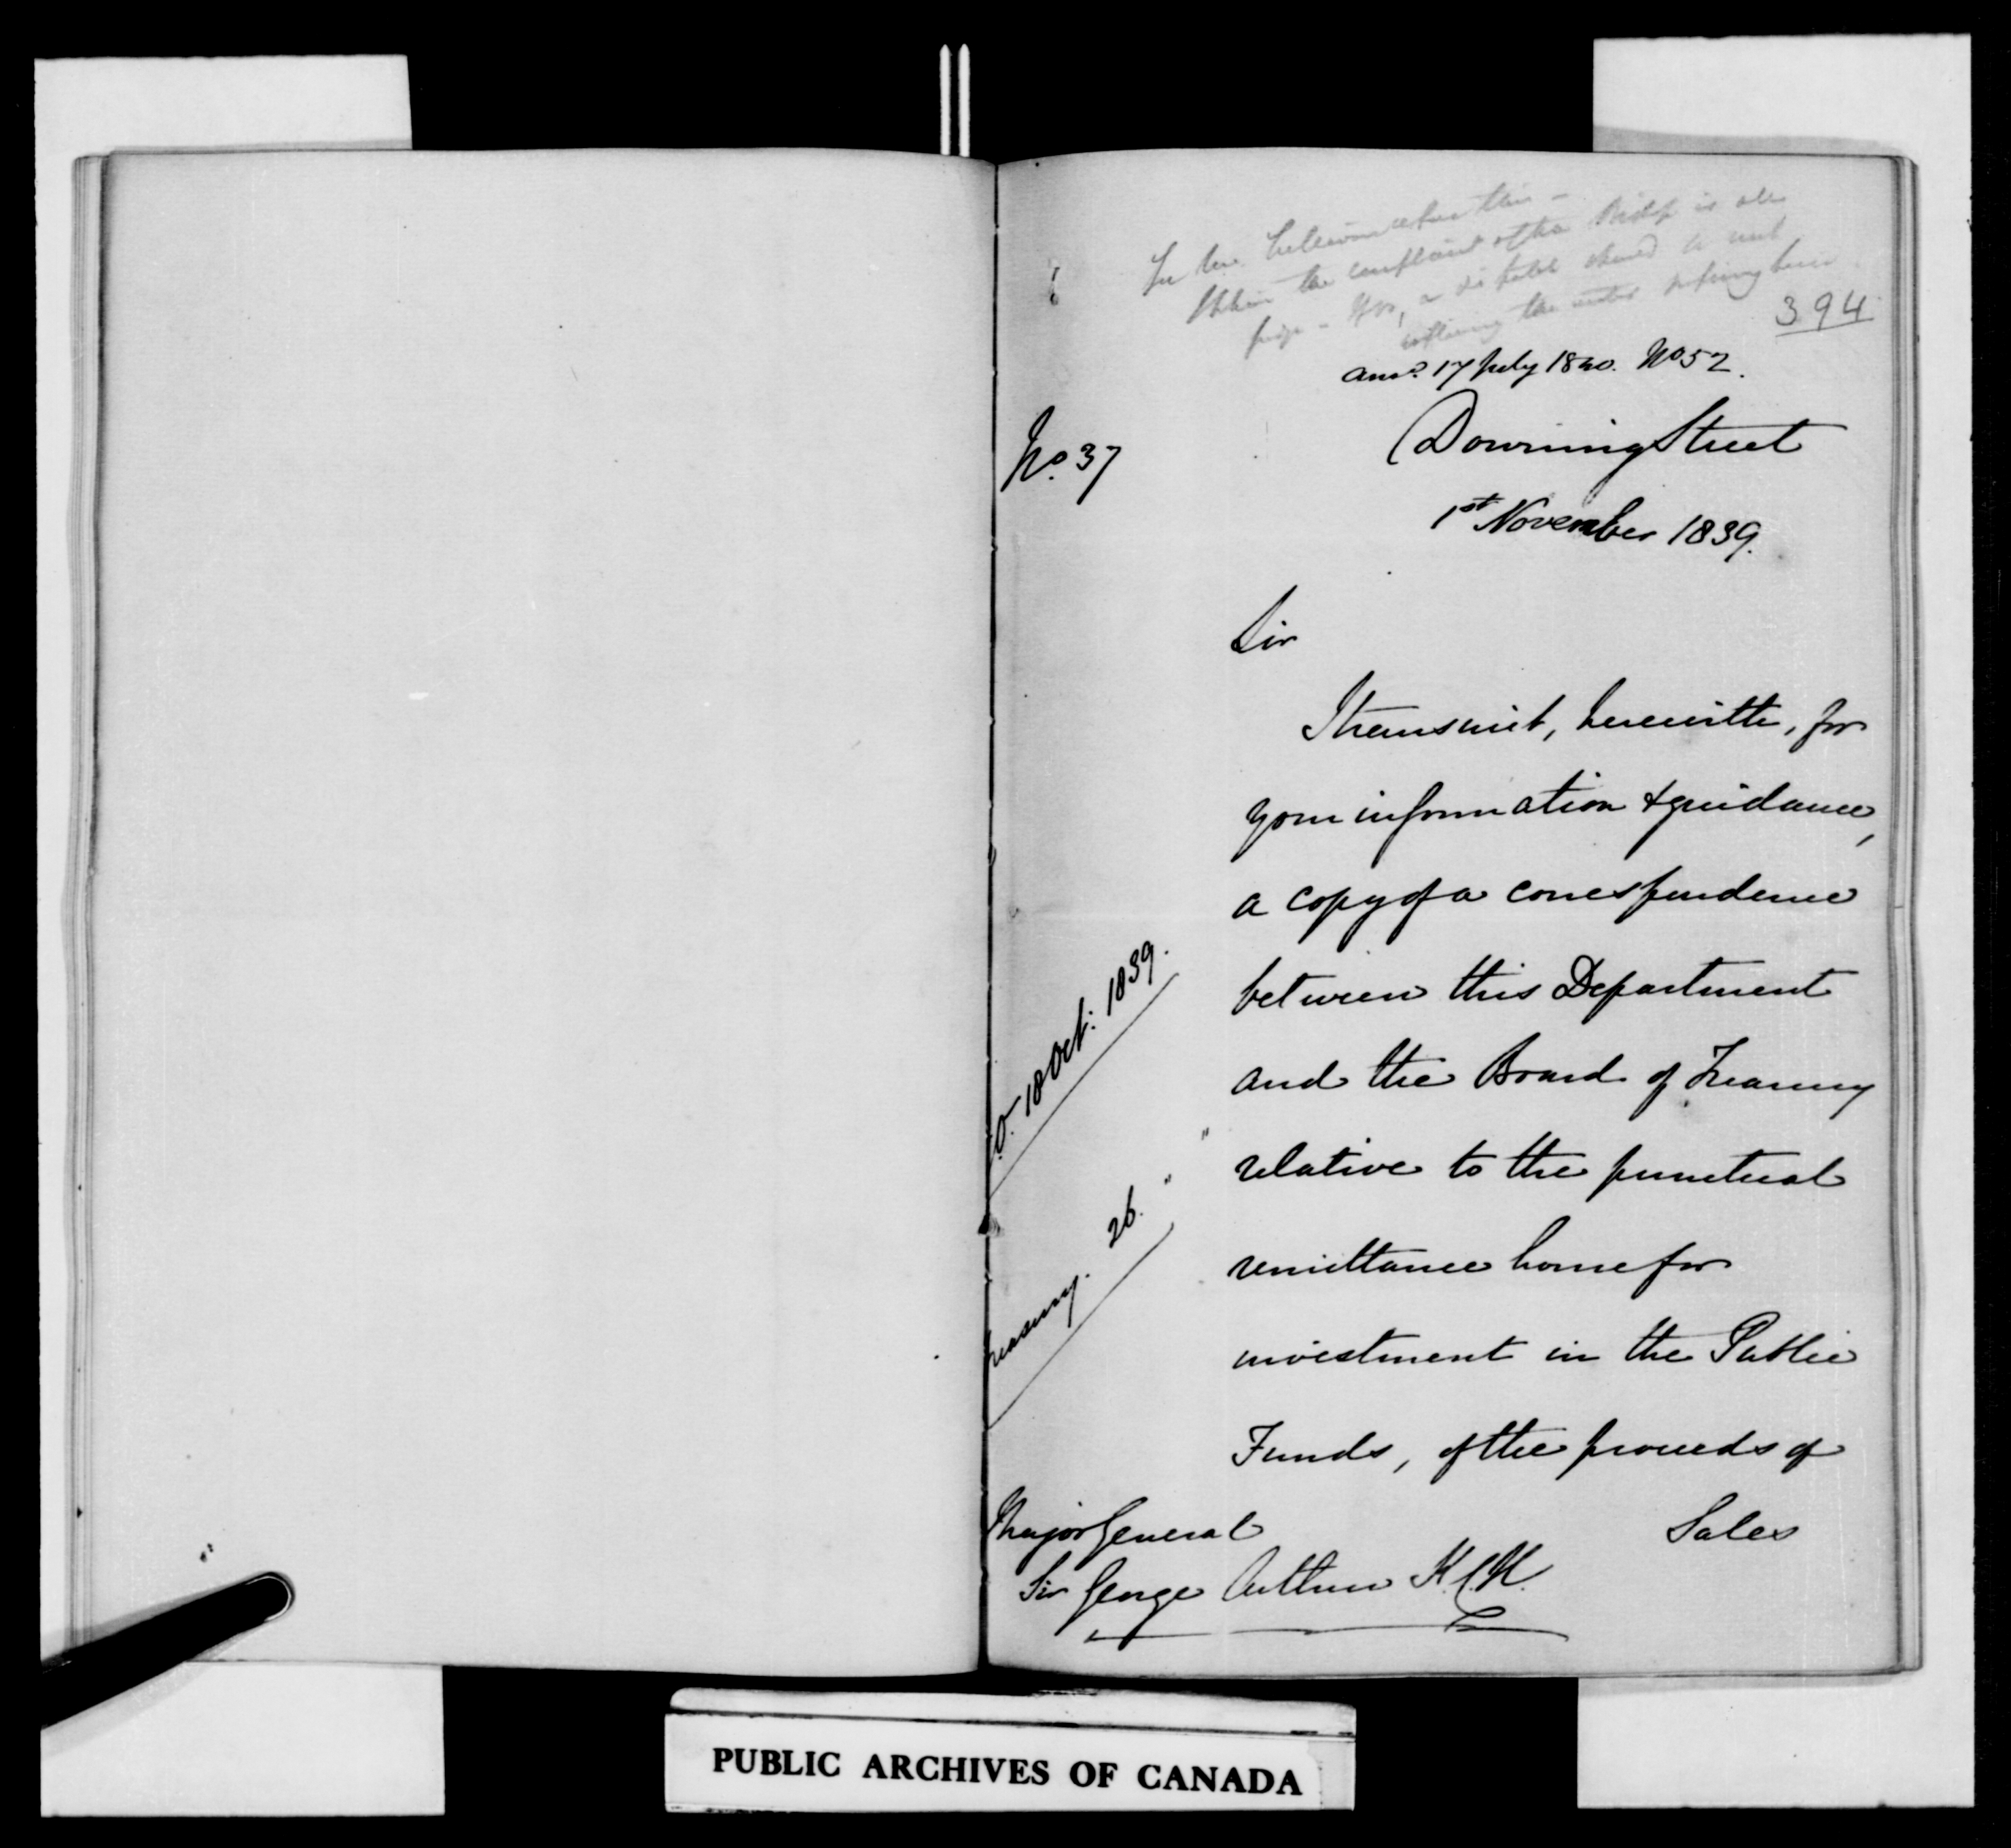 the complaint of the
394
Ansd. 17 July 1840. No 52.
No. 37
Downing Street
1st November 1839.
Sir
I transmit, herewith, for
your information & guidance,
a copy of a correspondence
between this Department
and the Board of Treasury
relative to the punctual
remittance home for
investment in the Public
Funds, of the proceeds of
Sales
.O. 18 Oct: 1839.
reasury. 26. " "
Major General
Sir George Arthur K.C.H.
PUBLIC ARCHIVES OF CANADA